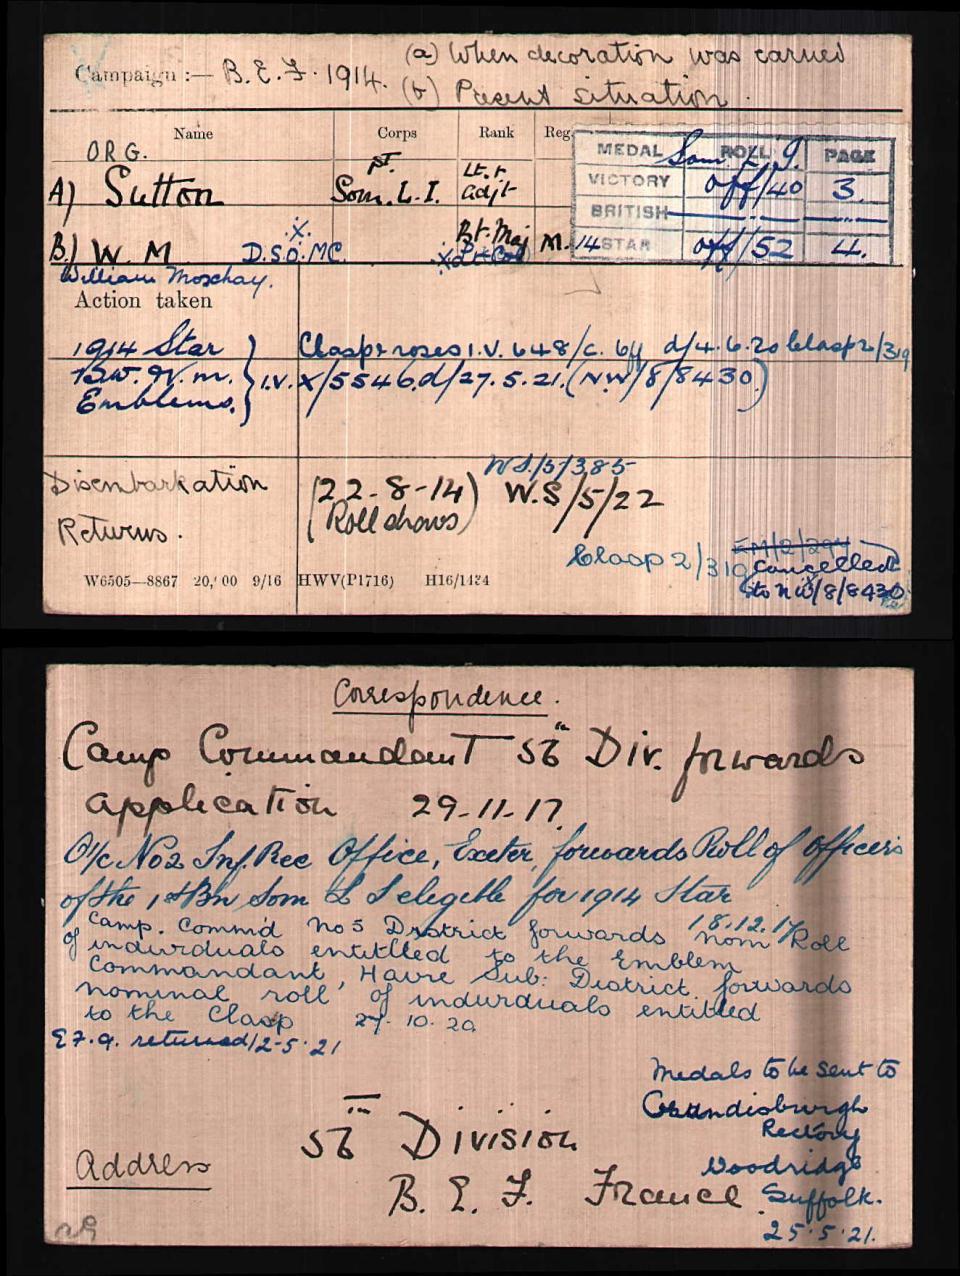 (a) When decoration was earned
Campaign :— B.E.F. 1914. (b) Present situation.
Name Corps Rank Reg.
MEDAL ROLL PAGE
Som. L.I.
VICTORY off/40 3.
BRITISH —"— —"—
14 STAR off/52 4.
ORG.
A) Sutton Som. L.I. Lt. & adjt
B) W. M D.S.O. M.C. Bt. Maj M.
x Lt Col
William Moxhay.
Action taken
1914 Star Clasp & roses I.V. 648/c. d/4.6.20 Clasp 2/319
B.W. & V.M. I.V. X/5546.d/27.5.21. (NW/8/8430)
Emblems.
Disembarkation (22-8-14) W.S/5/385
Returns. (Roll shows) W.S/5/22
Clasp 2/319
EM/2/294
Cancelled
to NW/8/8430
W6505—8867 20,'00 9/16 HWV(P1716) H16/1434
Correspondence.
Camp Commandant 56th Div. forwards
application 29-11-17.
O/c No 2 Inf. Rec Office, Exeter, forwards Roll of Officers
of the 1st Bn Som L I elegible for 1914 Star
18.12.17
Camp. Comm'd No 5 District forwards nom Roll
of individuals entitled to the Emblem
Commandant, Havre Sub: District forwards
nominal roll of individuals entitled
to the Clasp 27. 10. 20
returned 12-5-21
Medals to be sent to
Grundisburgh
Rectory
Woodridge
Suffolk.
25.5.21.
Address
56th Division
B. E. F. France